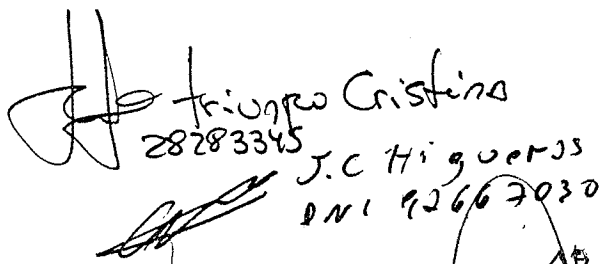 Triunfo Cristina
28283345
J.C Higueras
DNI 92667030